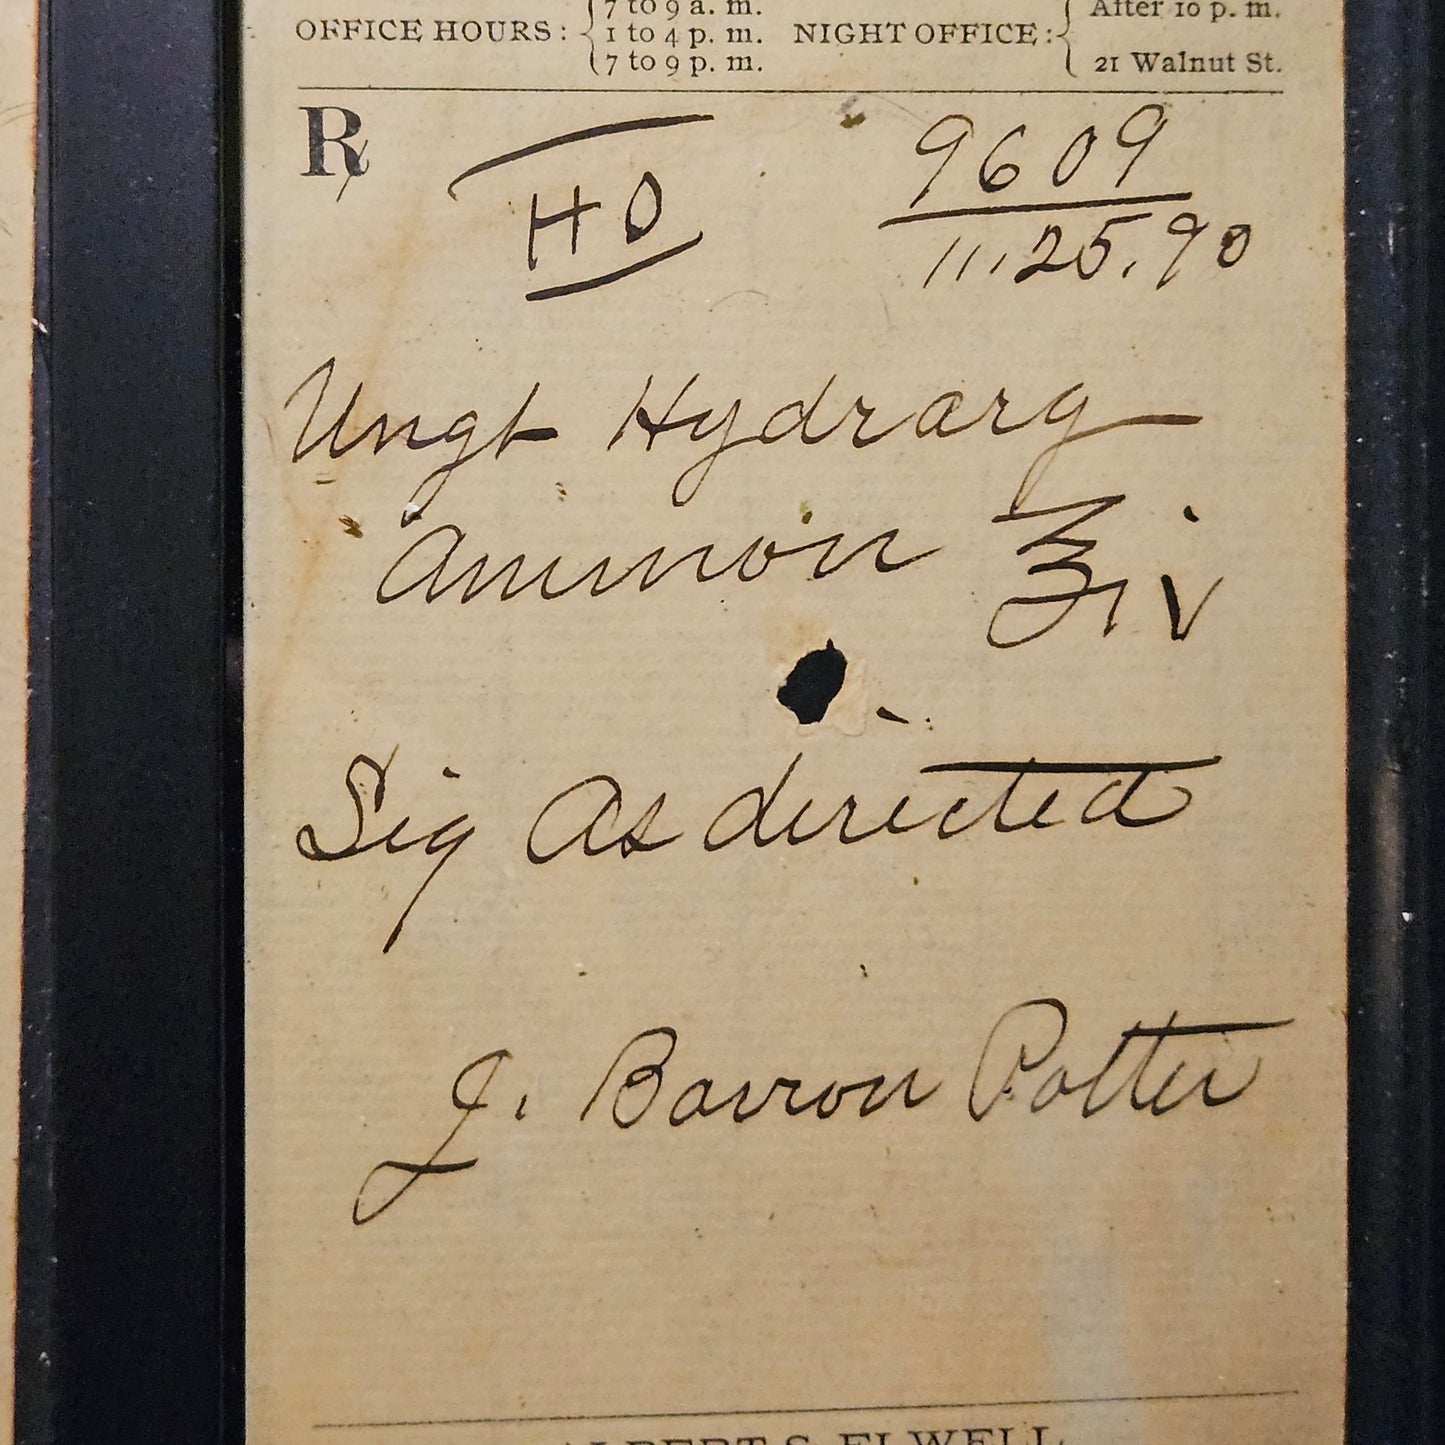 7 to 9 a. m.
OFFICE HOURS: 1 to 4 p. m.
7 to 9 p. m.
NIGHT OFFICE: After 10 p. m.
21 Walnut St.
℞
HO
9609
11.25.90
Ungt Hydrarg
Ammon ℥iv
Sig As directed
J. Barron Potter
ALBERT S. ELWELL